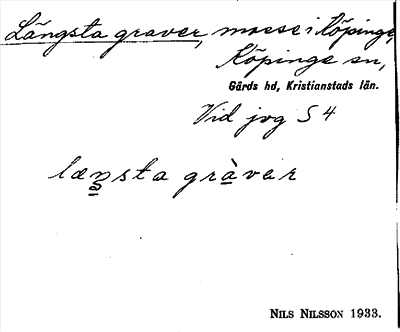 Långsta graver, mosse i Köpinge,
Köpinge sn,
Gärds hd, Kristianstads län.
Vid jvg S 4
læŋsta gràvar
NILS NILSSON 1933.